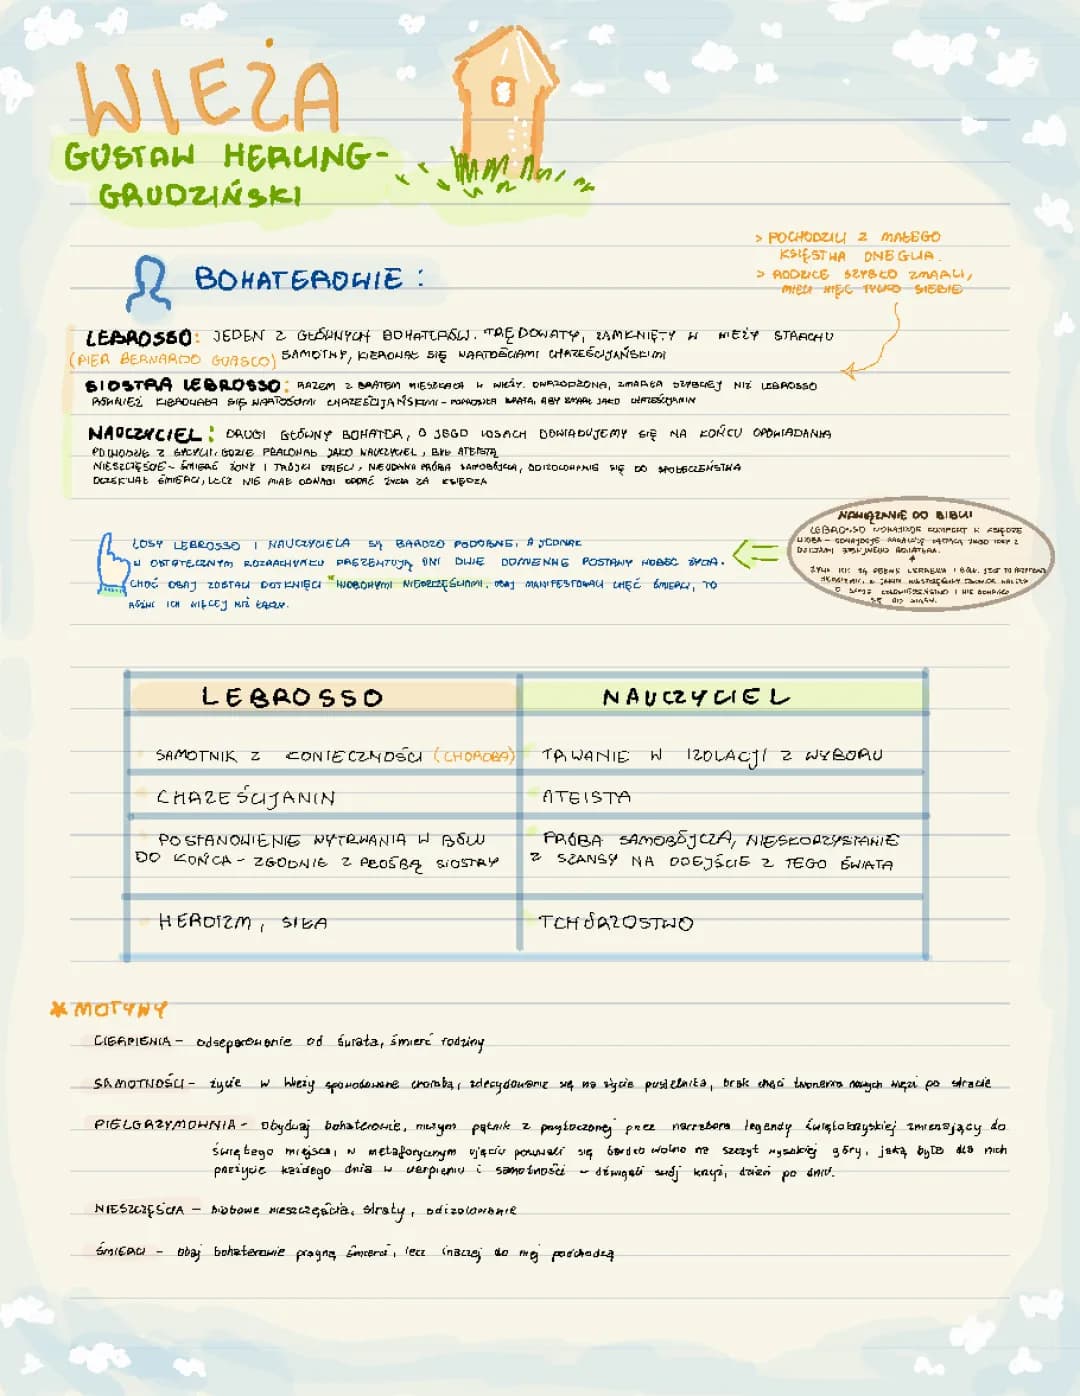 WIEŻA
GUSTAW HERLING-
GRUDZIŃSKI
> POCHODZILI Z MAŁEGO
KSIĘSTWA ONEGLIA.
> RODZICE SZYBKO ZMARLI,
MIELI WIĘC TYLKO SIEBIE
BOHATEROWIE:
LEBROSSO: JEDEN Z GŁÓWNYCH BOHATERÓW. TRĘDOWATY, ZAMKNIĘTY W WIEŻY STRACHU
(PIER BERNARDO GUASCO) SAMOTNY, KIEROWAŁ SIĘ WARTOŚCIAMI CHRZEŚCIJAŃSKIMI
SIOSTRA LEBROSSO: RAZEM Z BRATEM MIESZKAŁA W WIEŻY. OWRZODZONA, ZMARŁA SZYBCIEJ NIŻ LEBROSSO
RÓWNIEŻ KIEROWAŁA SIĘ WARTOŚCIAMI CHRZEŚCIJAŃSKIMI - POPROSIŁA BRATA, ABY ZMARŁ JAKO CHRZEŚCIJANIN
NAUCZYCIEL: DRUGI GŁÓWNY BOHATER, O JEGO LOSACH DOWIADUJEMY SIĘ NA KOŃCU OPOWIADANIA
POCHODZIŁ Z SYCYLII, GDZIE PRACOWAŁ JAKO NAUCZYCIEL, BYŁ ATEISTĄ
NIESZCZĘŚCIE - ŚMIERĆ ŻONY I TRÓJKI DZIECI, NIEUDANA PRÓBA SAMOBÓJCZA, ODIZOLOWANIE SIĘ OD SPOŁECZEŃSTWA
OCZEKIWAŁ ŚMIERCI, LECZ NIE MIAŁ ODWAGI ODDAĆ ŻYCIA ZA KSIĘDZA
NAWIĄZANIE DO BIBLII
LEBROSSO ZNAJDUJE KOMFORT W KSIĘDZE
HIOBA -
LOSY LEBROSSO I NAUCZYCIELA SĄ BARDZO PODOBNE, A JEDNAK
W OSTATECZNYM ROZRACHUNKU PREZENTUJĄ ONI DWIE ODMIENNE POSTAWY WOBEC ŻYCIA.
CHOĆ OBAJ ZOSTALI DOTKNIĘCI "HIOBOWYMI NIESZCZĘŚCIAMI, OBAJ MANIFESTOWALI CHĘĆ ŚMIERCI, TO
RÓŻNI ICH WIĘCEJ NIŻ ŁĄCZY.
LEBROSSO
NAUCZYCIEL
SAMOTNIK Z KONIECZNOŚCI (CHOROBA)
TRWANIE W IZOLACJI Z WYBORU
CHRZEŚCIJANIN
ATEISTA
POSTANOWIENIE WYTRWANIA W BÓLU
DO KOŃCA - ZGODNIE Z PROŚBĄ SIOSTRY
PRÓBA SAMOBÓJCZA, NIESKORZYSTANIE
Z SZANSY NA ODEJŚCIE Z TEGO ŚWIATA
HEROIZM, SIŁA
TCHÓRZOSTWO
* MOTYWY
CIERPIENIA - odseparowanie od świata, śmierć rodziny
SAMOTNOŚCI - życie w wieży spowodowane chorobą, zdecydowanie się na życie pustelnika, brak chęci tworzenia nowych więzi po stracie
PIELGRZYMOWNIA - Obydwaj bohaterowie, niczym pątnik z przytoczonej przez narratora legendy świętokrzyskiej zmierzający do
świętego miejsca, w metaforycznym ujęciu posuwali się bardzo wolno na szczyt wysokiej góry, jaką było dla nich
przeżycie każdego dnia w cierpieniu i samotności - dźwigali swój krzyż, dzień po dniu.
NIESZCZĘŚCIA - hiobowe nieszczęścia, straty, odizolowanie
ŚMIERCI - obaj bohaterowie pragną śmierci, lecz inaczej do niej podchodzą